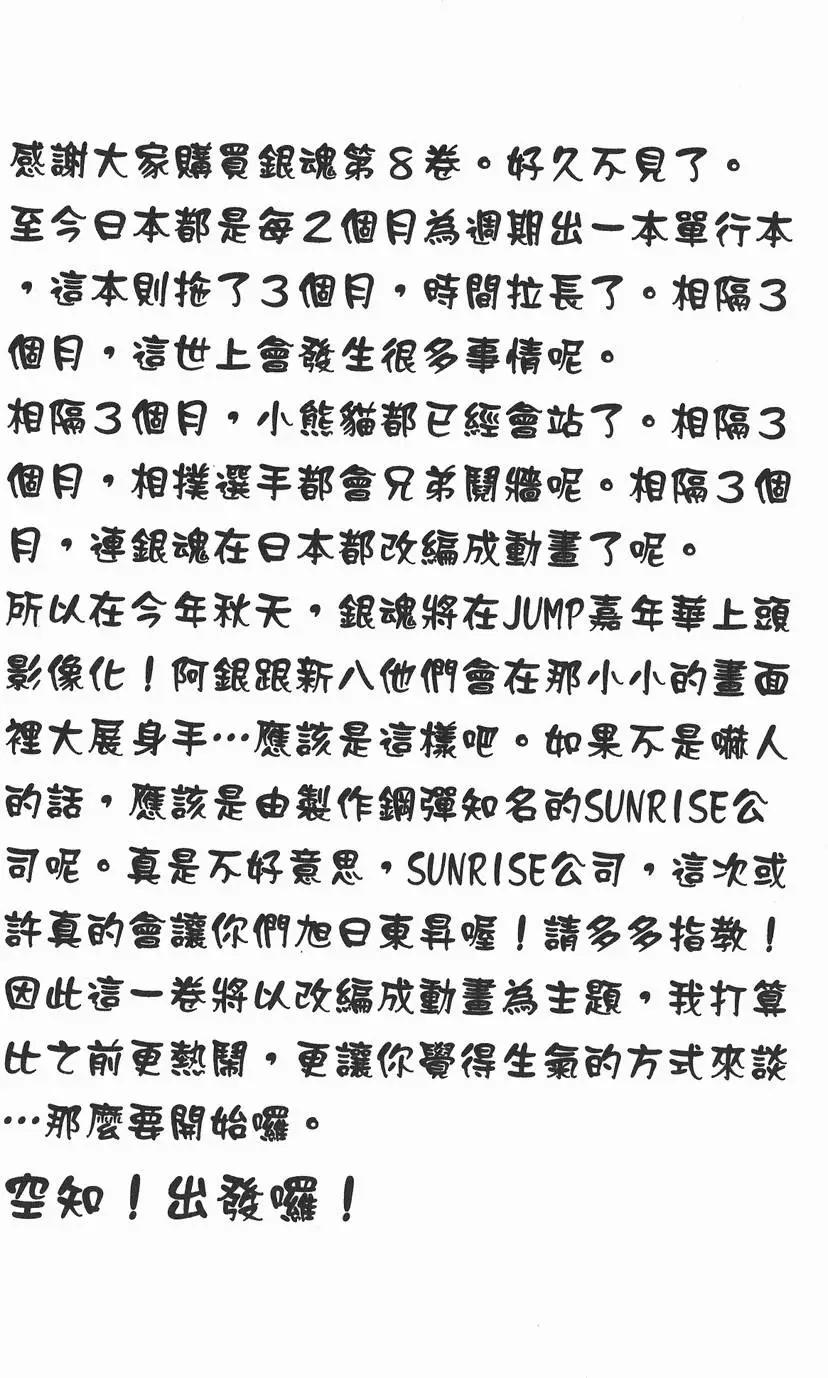 感謝大家購買銀魂第8卷。好久不見了。
至今日本都是每2個月為週期出一本單行本
，這本則拖了3個月，時間拉長了。相隔3
個月，這世上會發生很多事情呢。
相隔3個月，小熊貓都已經會站了。相隔3
個月，相撲選手都會兄弟鬩牆呢。相隔3個
月，連銀魂在日本都改編成動畫了呢。
所以在今年秋天，銀魂將在JUMP嘉年華上頭
影像化！阿銀跟新八他們會在那小小的畫面
裡大展身手…應該是這樣吧。如果不是嚇人
的話，應該是由製作鋼彈知名的SUNRISE公
司呢。真是不好意思，SUNRISE公司，這次或
許真的會讓你們旭日東昇喔！請多多指教！
因此這一卷將以改編成動畫為主題，我打算
比之前更熱鬧，更讓你覺得生氣的方式來談
…那麼要開始囉。
空知！出發囉！